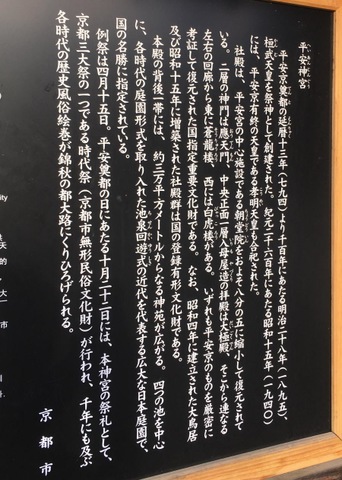 平安神宮
平安京奠都の延暦十三年(七九四)より千百年にあたる明治二十八年(一八九五)、
桓武天皇を祭神として創建された。紀元二千六百年にあたる昭和十五年(一九四〇)
には、平安京有終の天皇である孝明天皇も合祀された。
社殿は、平安宮の中心施設である朝堂院をおよそ八分の五に縮小して復元されて
いる。二層の神門は應天門、中央正面一層入母屋造の拝殿は大極殿、そこから連なる
左右の回廊から東に蒼龍楼、西には白虎楼がある。いずれも平安京のものを厳密に
考証して復元された国指定重要文化財である。なお、昭和四年に建立された大鳥居
及び昭和十五年に増築された社殿群は国の登録有形文化財である。
本殿の背後一帯には、約三万平方メートルからなる神苑が広がる。四つの池を中心
に、各時代の庭園形式を取り入れた池泉回遊式の近代を代表する広大な日本庭園で、
国の名勝に指定されている。
例祭は四月十五日。平安奠都の日にあたる十月二十二日には、本神宮の祭礼として、
京都三大祭の一つである時代祭(京都市無形民俗文化財)が行われ、千年にも及ぶ
各時代の歴史風俗絵巻が錦秋の都大路にくりひろげられる。
京都市